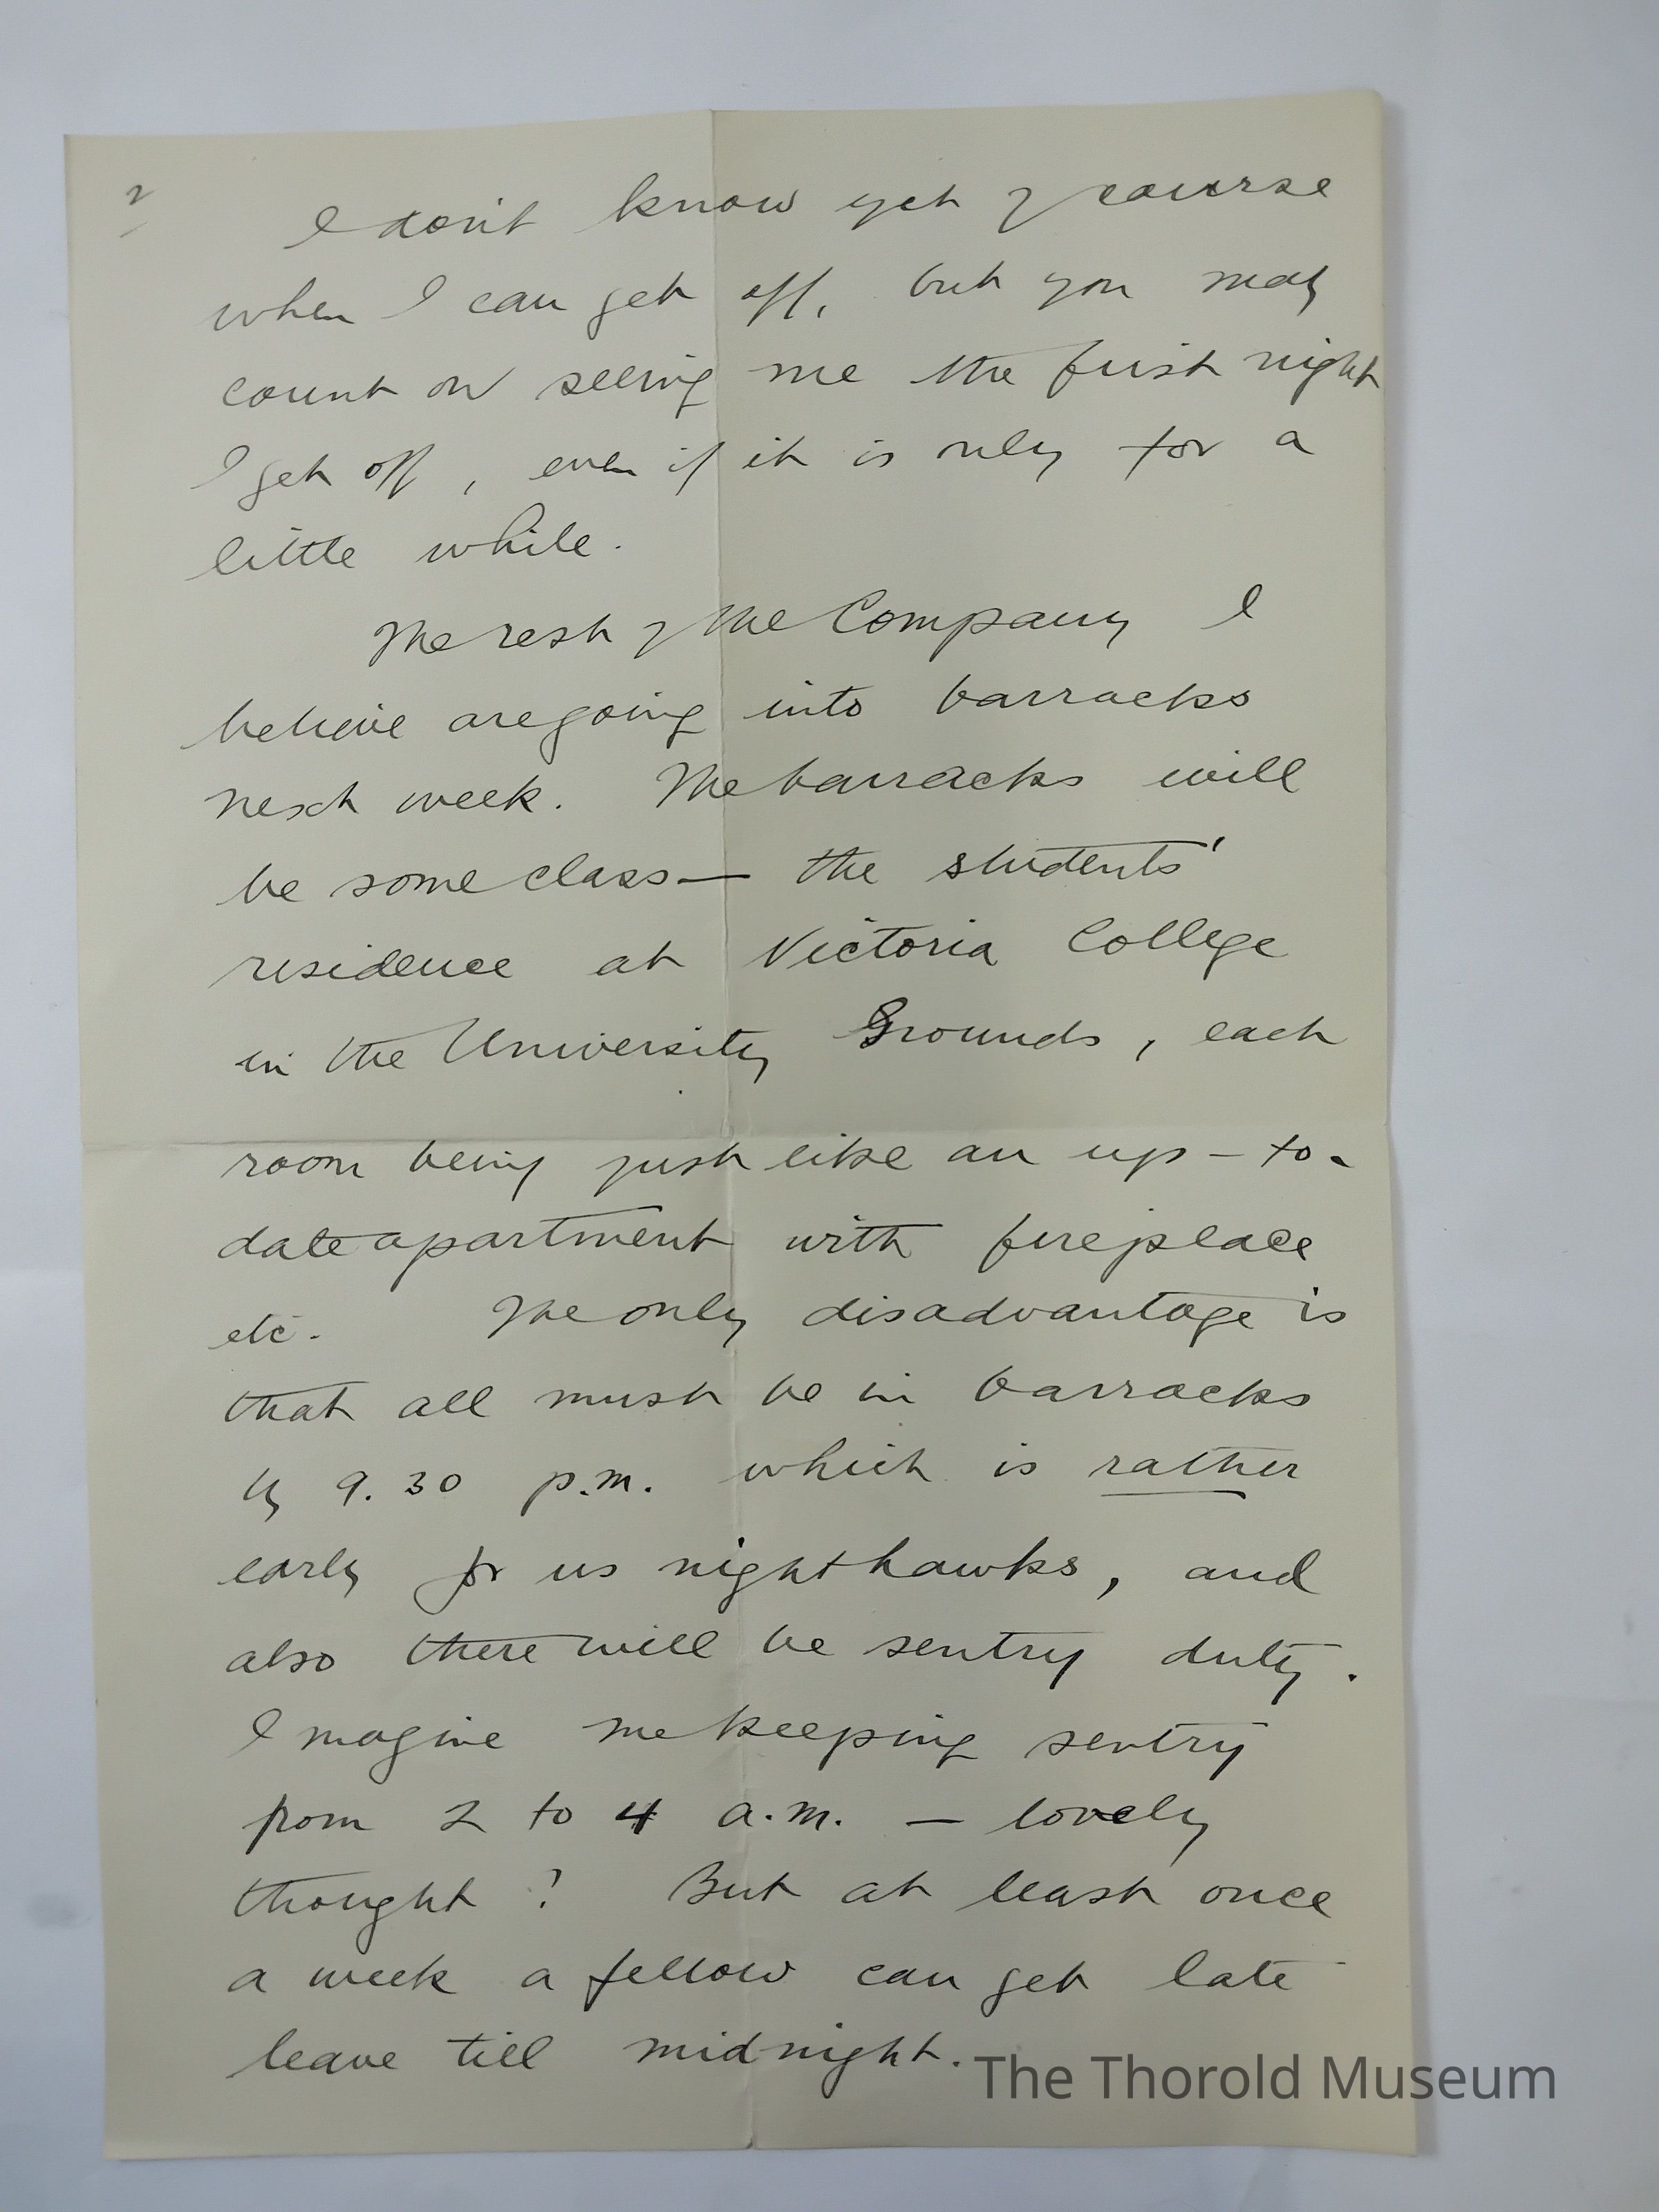 2
I don't know yet of course
when I can get off, but you may
count on seeing me the first night
I get off, even if it is only for a
little while.
The rest of the Company I
believe are going into barracks
next week. The barracks will
be some class — the students'
residence at Victoria College
in the University Grounds, each
room being just like an up-to-
date apartment with fireplace
etc. The only disadvantage is
that all must be in barracks
by 9.30 p.m. which is rather
early for us nighthawks, and
also there will be sentry duty.
Imagine me keeping sentry
from 2 to 4 a.m. — lovely
thought? But at least once
a week a fellow can get late
leave till midnight.
The Thorold Museum